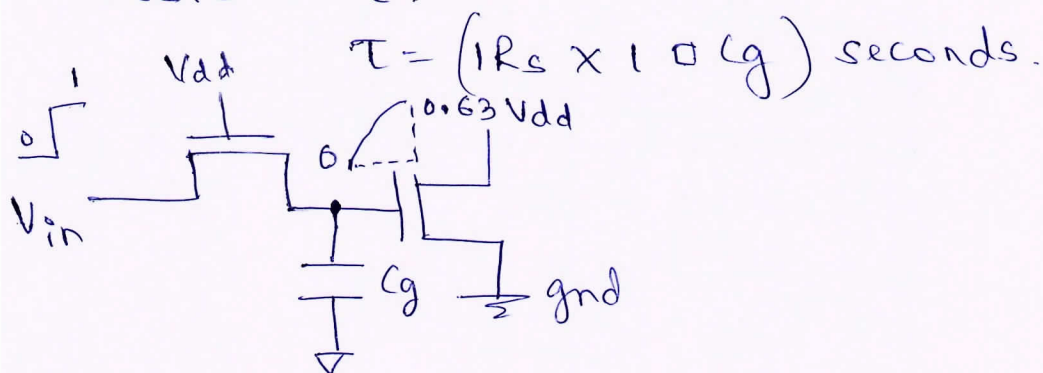 τ = (1Rs × 1 □ Cg) seconds.
Vdd
1
0
0.63 Vdd
0
Vin
Cg
gnd